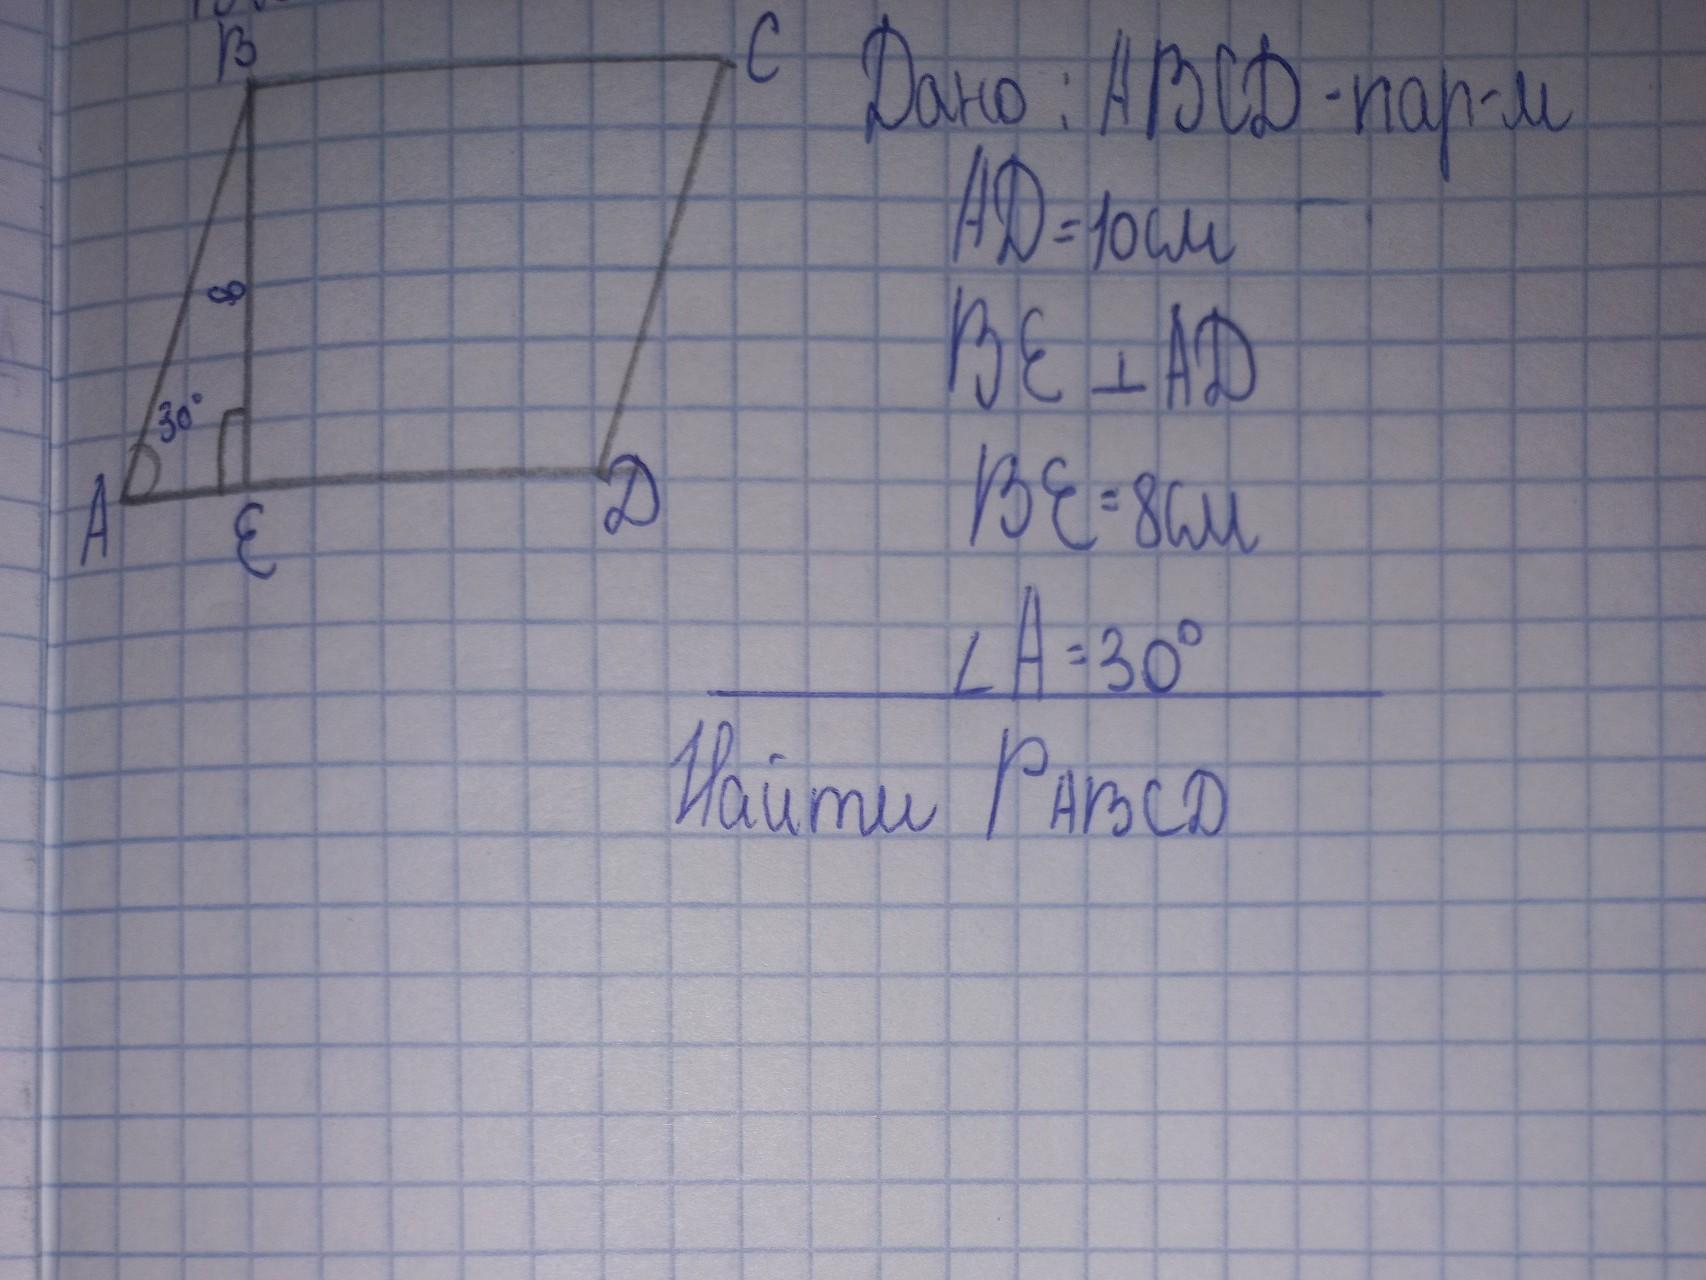 B
C
8
30°
A
E
D
Дано: ABCD-пар-м
AD=10см
BE⊥AD
BE=8см
∠A=30°
Найти PABCD